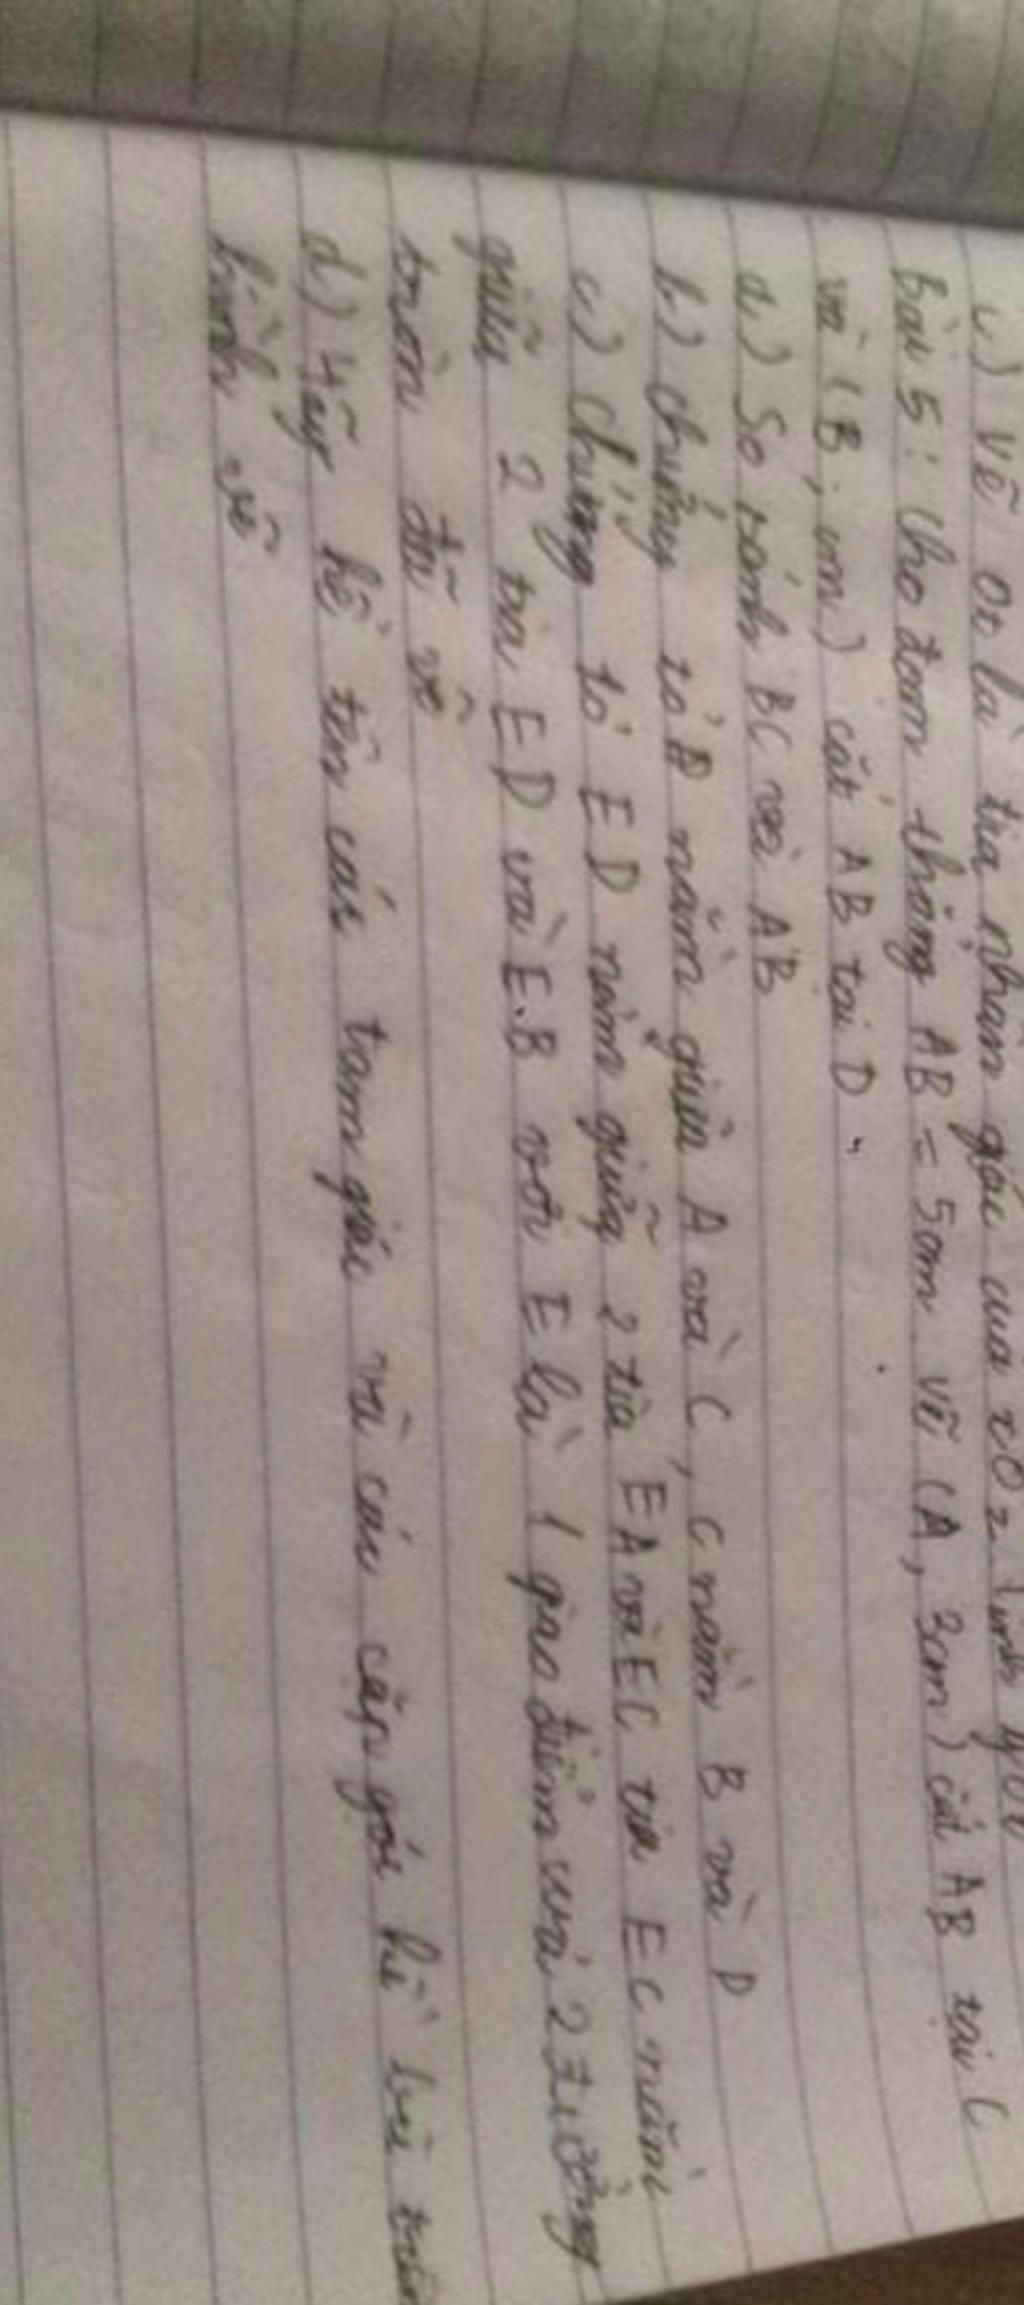 c) Vẽ Ot là tia nhân góc của xOz tính góc
Bài 5: Cho đoạn thẳng AB = 5cm vẽ (A, 3cm) cắt AB tại C
và (B, cm) cắt AB tại D
a) So sánh BC và AB
b) Chứng tỏ D nằm giữa A và C, C nằm B và D
c) Chứng tỏ ED nằm giữa 2 tia EA và EC tia EC nằm
giữa 2 tia ED và E.B với E là 1 giao điểm của 2 đường
tròn đã vẽ
d) Hãy kể tên các tam giác và các cặp góc kề bù trên
hình vẽ